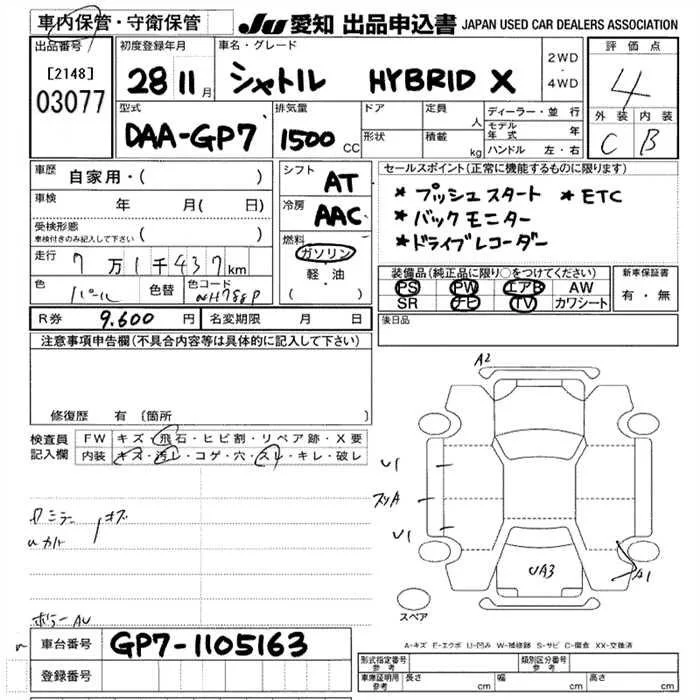 車内保管・守衛保管 JU 愛知 出品申込書 JAPAN USED CAR DEALERS ASSOCIATION
出品番号 初度登録年月 車名・グレード 評価点
[2148] 28 11月 シャトル HYBRID X 2WD・4WD 4
03077
型式 排気量 ドア 定員 人 ディーラー・並行 外装 内装
DAA-GP7 1500 CC 形状 積載 kg モデル年式 年 C B
ハンドル 左・右
車歴 自家用・( ) シフト AT セールスポイント(正常に機能するものに限ります)
車検 年 月( 日) 冷房 AAC * プッシュスタート * ETC
受検形態 * バックモニター
車検付きのみ記入して下さい ( ) 燃料 * ドライブレコーダー
走行 7万1千437km ガソリン
軽・油
( )
装備品(純正品に限り○をつけてください) 新車保証書
色 パール 色替 色コード NH788P PS PW エアB AW 有・無
SR ナビ TV カワシート
R券 9.600 円 名変期限 月 日 後日品
注意事項申告欄(不具合内容等は具体的に記入して下さい)
修復歴 有 〔箇所 〕
検査員記入欄 FW キズ・飛石・ヒビ割・リペア跡・X要
内装 キズ・汚レ・コゲ・穴・スレ・キレ・破レ
A2
U1
スリA
U1
UA3
A1
スペア
ミラー キズ
車台番号 GP7-1105163
登録番号
A-キズ E-エクボ U-凹み W-補修跡 S-サビ C-腐食 XX-交換済
形式指定番号 参考 類別区分番号 参考
車庫証明用 参考 長さ cm 幅 cm 高さ cm